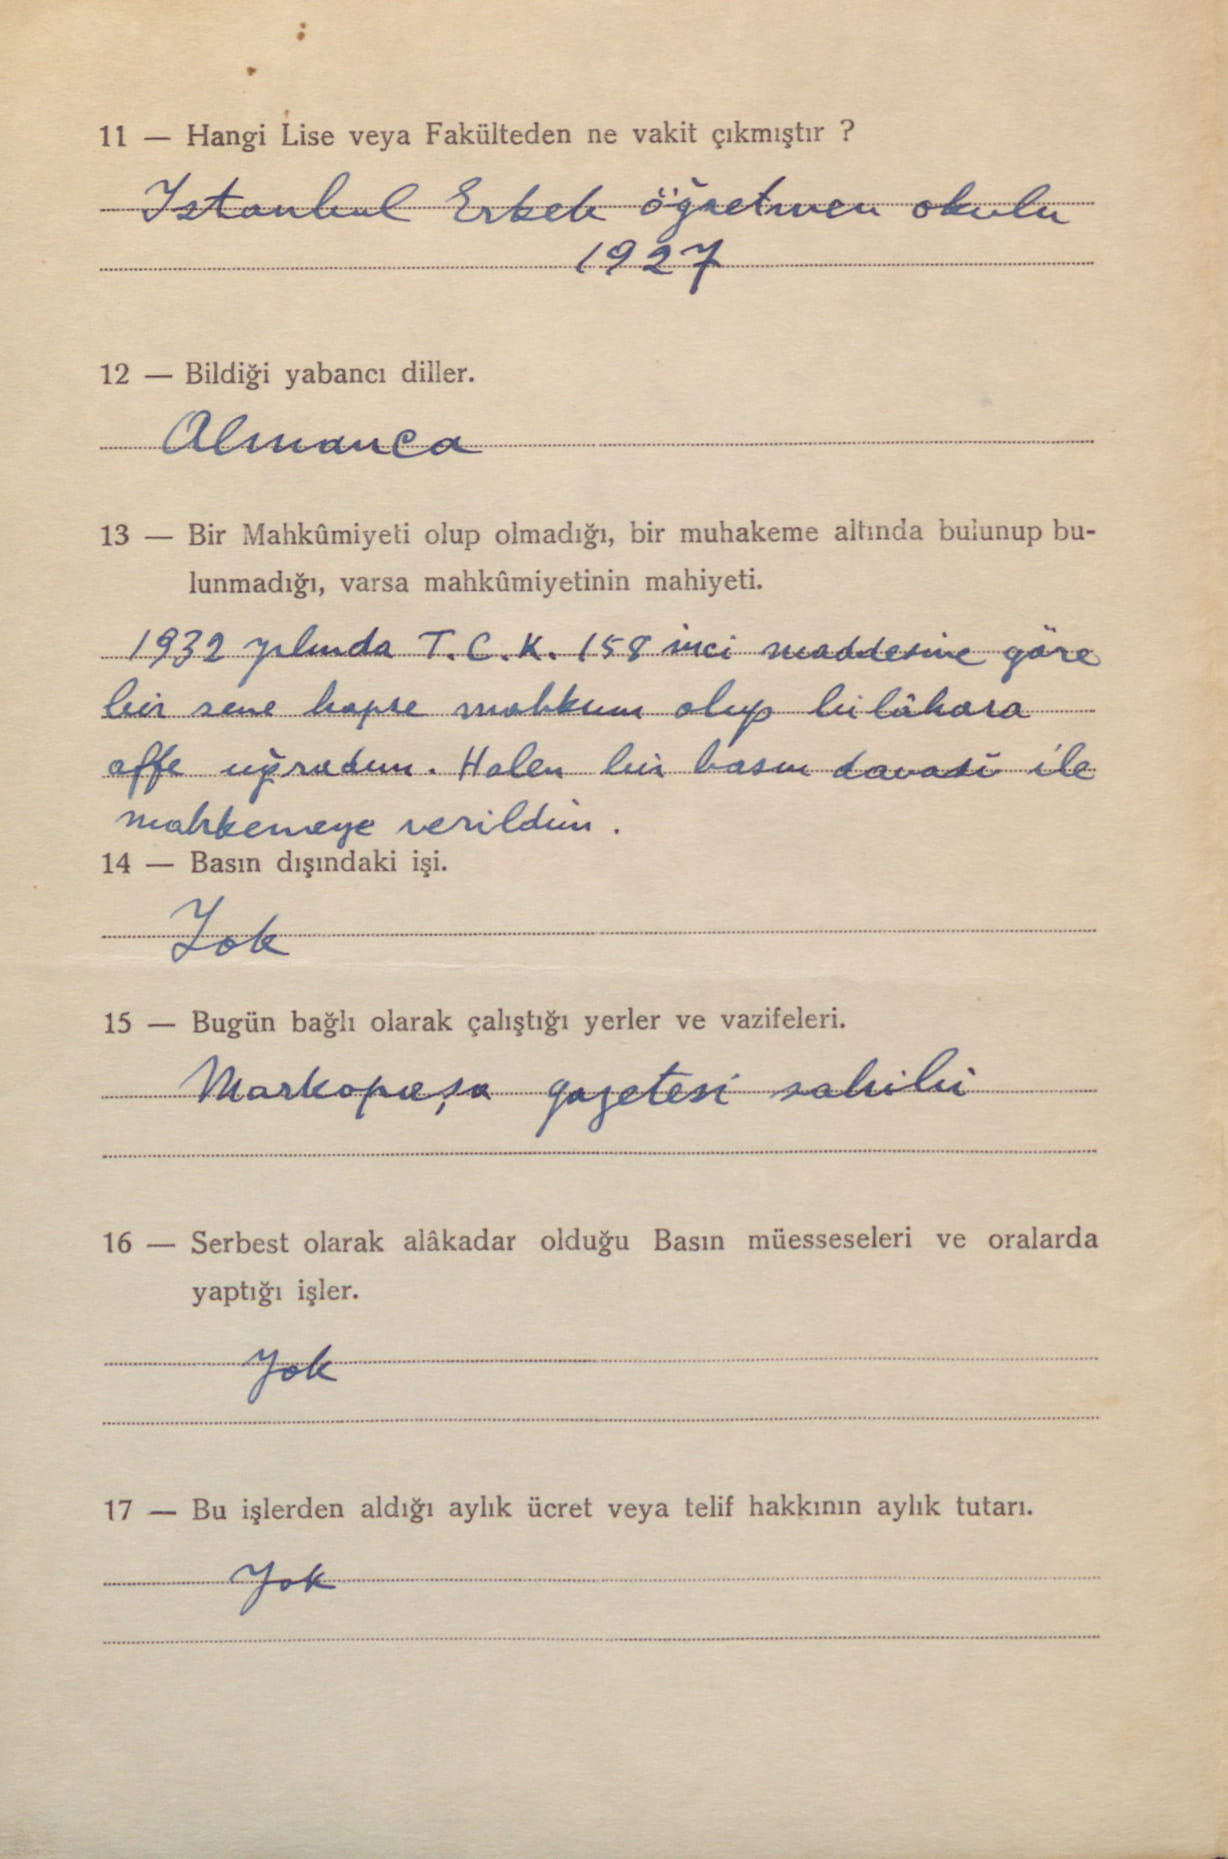 11 — Hangi Lise veya Fakülteden ne vakit çıkmıştır ?
Istanbul Erkek öğretmen okulu
1927
12 — Bildiği yabancı diller.
Almanca
13 — Bir Mahkûmiyeti olup olmadığı, bir muhakeme altında bulunup bu-
lunmadığı, varsa mahkûmiyetinin mahiyeti.
1932 yılında T.C.K. 158 inci maddesine göre
bir sene hapse mahkum olup bilâhara
affe uğradım. Halen bir basın davası ile
mahkemeye verildim.
14 — Basın dışındaki işi.
Yok
15 — Bugün bağlı olarak çalıştığı yerler ve vazifeleri.
Markopaşa gazetesi sahibi
16 — Serbest olarak alâkadar olduğu Basın müesseseleri ve oralarda
yaptığı işler.
Yok
17 — Bu işlerden aldığı aylık ücret veya telif hakkının aylık tutarı.
Yok